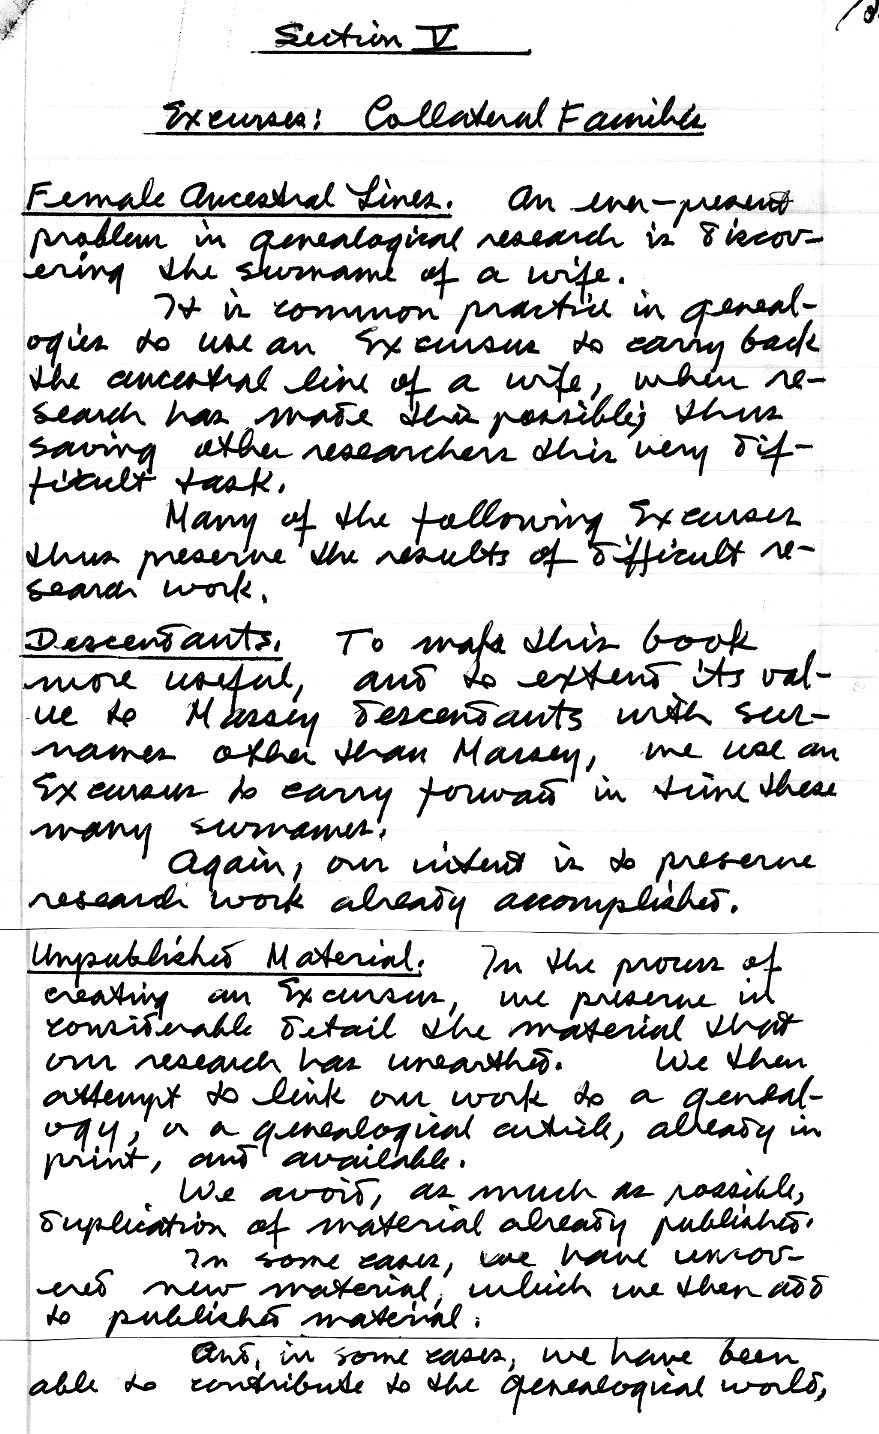 Section V
Excurses: Collateral Families
Female Ancestral Lines. An ever-present
problem in genealogical research is discov-
ering the surname of a wife.
It is common practice in geneal-
ogies to use an Excursus to carry back
the ancestral line of a wife, when re-
search has made this possible; thus
saving other researchers this very dif-
ficult task.
Many of the following Excurses
thus preserve the results of difficult re-
search work.
Descendants. To make this book
more useful, and to extend its val-
ue to Massey descendants with sur-
names other than Massey, we use an
Excursus to carry forward in time these
many surnames.
Again, our intent is to preserve
research work already accomplished.
Unpublished Material. In the process of
creating an Excursus, we preserve in
considerable detail the material that
our research has unearthed. We then
attempt to link our work to a geneal-
ogy, or a genealogical article, already in
print, and available.
We avoid, as much as possible,
duplication of material already published.
In some cases, we have uncov-
ered new material, which we then add
to published material.
And, in some cases, we have been
able to contribute to the genealogical world,